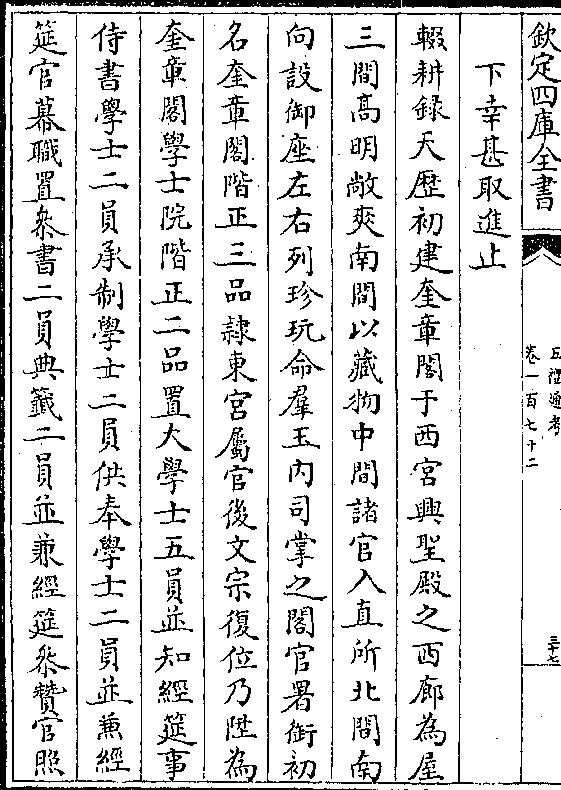 欽定四庫全書
五禮通考
卷一百七十二
三十七
下幸甚取進止
輟耕録天歷初建奎章閣于西宫興聖殿之西廊為屋
三間髙明敞爽南間以藏物中間諸官入直所北間南
向設御座左右列珍玩命羣玉内司掌之閣官署銜初
名奎章閣階正三品隷東宫屬官後文宗復位乃陞為
奎章閣學士院階正二品置大學士五員並知經筵事
侍書學士二員承制學士二員供奉學士二員並兼經
筵官幕職置叅書二員典籖二員並兼經筵叅贊官照